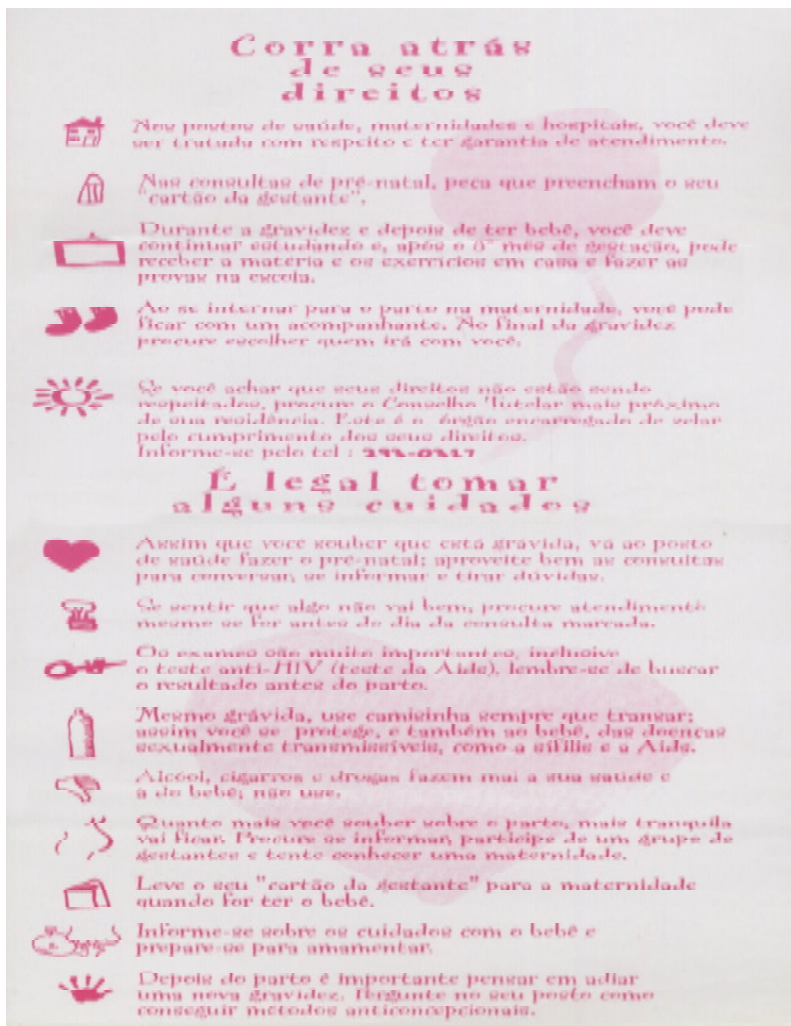 Corra atrás
de seus
direitos
Nos postos de saúde, maternidades e hospitais, você deve
ser tratada com respeito e ter garantia de atendimento.
Nas consultas de pré-natal, peça que preencham o seu
"cartão da gestante".
Durante a gravidez e depois de ter bebê, você deve
continuar estudando e, após o mês de gestação, pode
receber a matéria e os exercícios em casa e fazer as
provas na escola.
Ao se internar para o parto na maternidade, você pode
ficar com um acompanhante. No final da gravidez
procure escolher quem irá com você.
Se você achar que seus direitos não estão sendo
respeitados, procure o Conselho Tutelar mais próximo
de sua residência. Este é o órgão encarregado de zelar
pelo cumprimento dos seus direitos.
Informe-se pelo tel :
É legal tomar
alguns cuidados
Assim que você souber que está grávida, vá ao posto
de saúde fazer o pré-natal; aproveite bem as consultas
para conversar, se informar e tirar dúvidas.
Se sentir que algo não vai bem, procure atendimento
mesmo se for antes do dia da consulta marcada.
Os exames são muito importantes, inclusive
o teste anti-HIV (teste da Aids), lembre-se de buscar
o resultado antes do parto.
Mesmo grávida, use camisinha sempre que transar;
assim você se protege, e também ao bebê, das doenças
sexualmente transmissíveis, como a sífilis e a Aids.
Álcool, cigarros e drogas fazem mal a sua saúde e
a do bebê; não use.
Quanto mais você souber sobre o parto, mais tranquila
vai ficar. Procure se informar, participe de um grupo de
gestantes e tente conhecer uma maternidade.
Leve o seu "cartão da gestante" para a maternidade
quando for ter o bebê.
Informe-se sobre os cuidados com o bebê e
prepare-se para amamentar.
Depois do parto é importante pensar em adiar
uma nova gravidez. Pergunte no seu posto como
conseguir métodos anticoncepcionais.